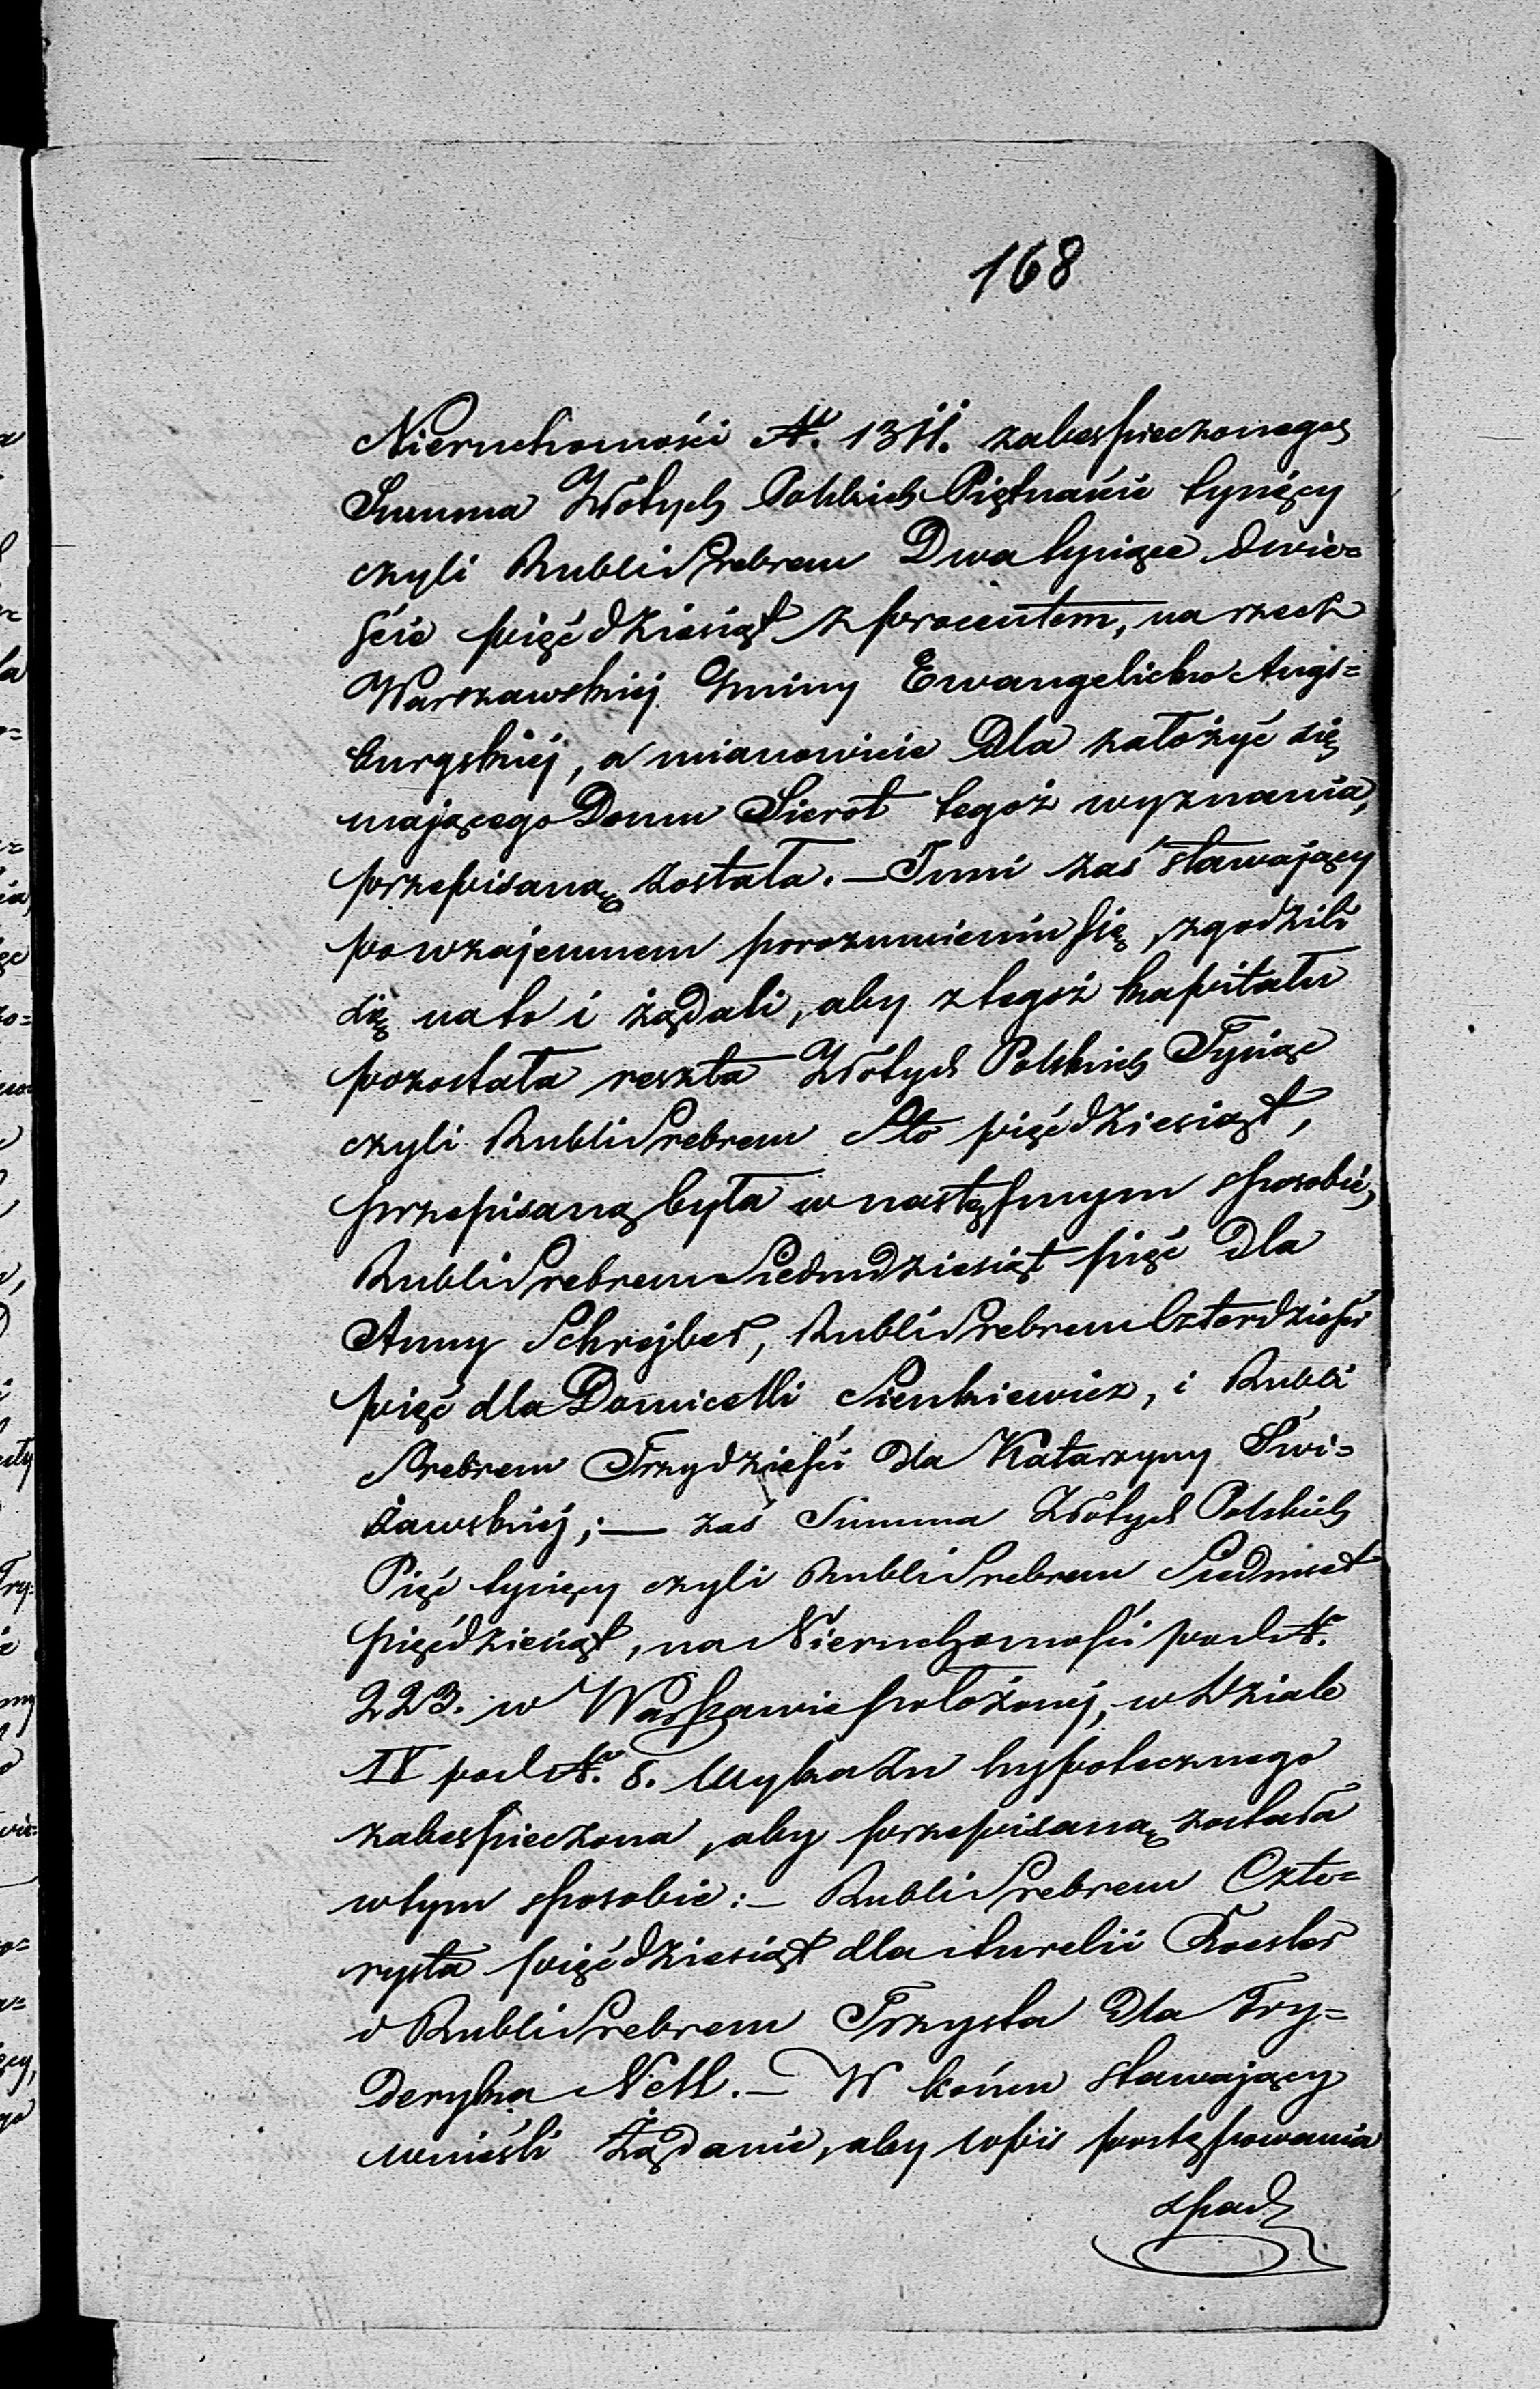 168
Nieruchomości № 1311. zabespieczonego
Summa Złotych Polskich Piętnaście tysięcy
czyli Rubli Srebrem Dwa tysiące dwie=
ście pięćdziesiąt z procentem, na rzecz
Warszawskiej Gminy Ewangelicko Augs=
burgskiej, a mianowicie Dla założyć się
mającego Domu Sierot tegoż wyznania,
przepisaną została. — Inni zaś stawający
po wzajemnem porozumieniu się, zgodzili
się na to i żądali, aby z tegoż kapitału
pozostała reszta Złotych Polskich Tysiąc
czyli Rubli Srebrem Sto pięćdziesiąt,
przepisaną była w następnym sposobie,
Rubli Srebrem Siedmdziesiąt pięć Dla
Anny Schrejber, Rubli Srebrem Czterdzieści
pięć dla Domicelli Sienkiewicz, i Rubli
Srebrem Trzydzieści Dla KatarzynyŚwi=
żawskiej; — zaś Summa Złotych Polskich
Pięć tysięcy czyli Rubli Srebrem Siedmset
pięćdziesiąt, na Nieruchomości pod №
223. w Warszawie położonej, w Dziale
IV pod № 8. Wykazu hypotecznego
zabespieczona, aby przepisaną została
w tym sposobie: — Rubli Srebrem Czte=
rysta pięćdziesiąt dla Aurelii Koester
i Rubli Srebrem Trzysta Dla Fry=
Deryka Nell. — W końcu stawający
wnieśli Żądanie, aby wpis postępowania
spad